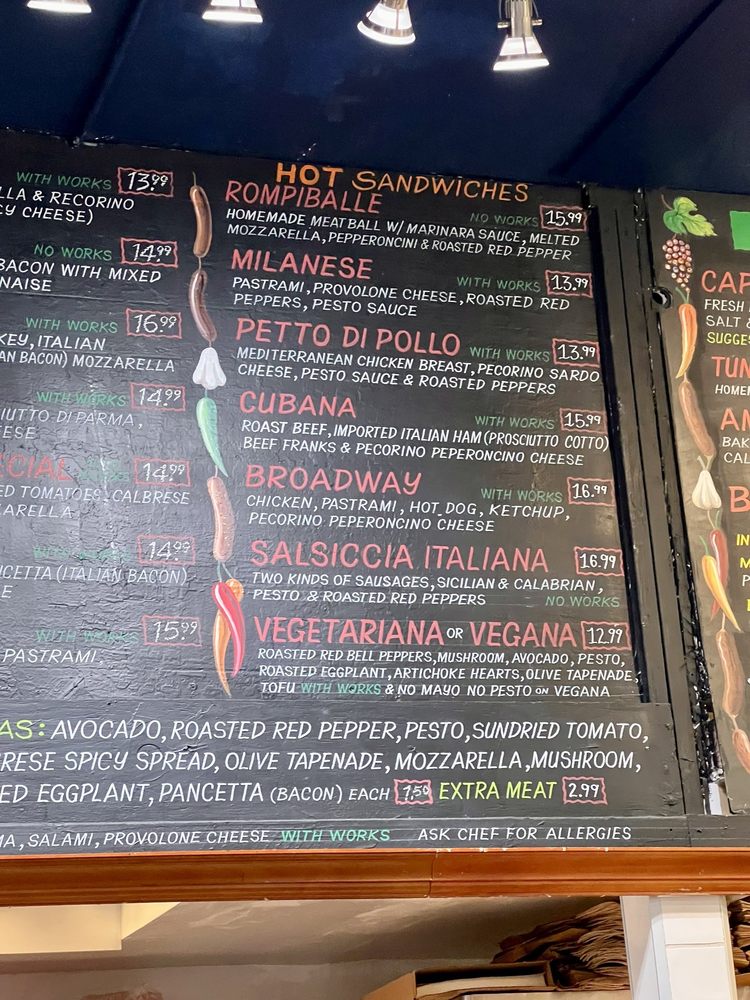 WITH WORKS 13.99
LLA & RECORINO
CY CHEESE)
NO WORKS 14.99
BACON WITH MIXED
NAISE
WITH WORKS 16.99
KEY, ITALIAN
AN BACON) MOZZARELLA
WITH WORKS 14.99
CIUTTO DI PARMA,
EESE
ECIAL 14.99
ED TOMATOES, CALBRESE
ARELLA
14.99
NCETTA (ITALIAN BACON)
E
WITH WORKS 15.99
PASTRAMI,
HOT SANDWICHES
ROMPIBALLE
NO WORKS 15.99
HOMEMADE MEATBALL W/ MARINARA SAUCE, MELTED
MOZZARELLA, PEPPERONCINI & ROASTED RED PEPPER
MILANESE
WITH WORKS 13.99
PASTRAMI, PROVOLONE CHEESE, ROASTED RED
PEPPERS, PESTO SAUCE
PETTO DI POLLO WITH WORKS 13.99
MEDITERRANEAN CHICKEN BREAST, PECORINO SARDO
CHEESE, PESTO SAUCE & ROASTED PEPPERS
CUBANA
WITH WORKS 15.99
ROAST BEEF, IMPORTED ITALIAN HAM (PROSCIUTTO COTTO)
BEEF FRANKS & PECORINO PEPERONCINO CHEESE
BROADWAY WITH WORKS 16.99
CHICKEN, PASTRAMI, HOT DOG, KETCHUP,
PECORINO PEPERONCINO CHEESE
SALSICCIA ITALIANA 16.99
TWO KINDS OF SAUSAGES, SICILIAN & CALABRIAN,
PESTO & ROASTED RED PEPPERS NO WORKS
VEGETARIANA OR VEGANA 12.99
ROASTED RED BELL PEPPERS, MUSHROOM, AVOCADO, PESTO,
ROASTED EGGPLANT, ARTICHOKE HEARTS, OLIVE TAPENADE,
TOFU WITH WORKS & NO MAYO NO PESTO ON VEGANA
AS: AVOCADO, ROASTED RED PEPPER, PESTO, SUNDRIED TOMATO,
RESE SPICY SPREAD, OLIVE TAPENADE, MOZZARELLA, MUSHROOM,
ED EGGPLANT, PANCETTA (BACON) EACH 1.50 EXTRA MEAT 2.99
MA, SALAMI, PROVOLONE CHEESE WITH WORKS ASK CHEF FOR ALLERGIES
CAP
FRESH
SALT
SUGGES
TUN
HOME
AM
BAK
CAL
B
IN
M
P